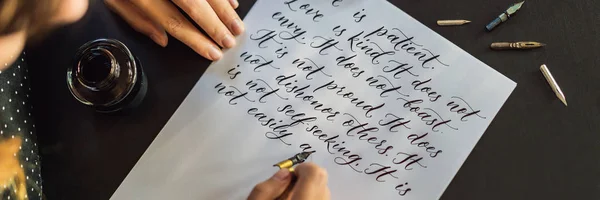 is patient.
Love is kind. It does not
envy. It does not boast.
It is not proud. It does
not dishonor others. It
is not self-seeking. It is
not easily a